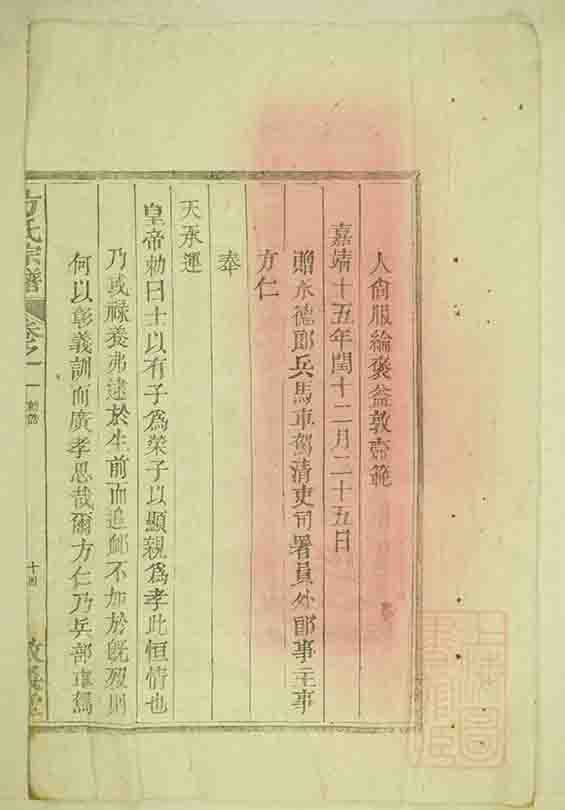 人尙服綸褒益敦壼範
嘉靖十五年閏十二月二十五日
贈承德郎兵馬車駕清吏司署員外郎事主事
方仁
奉
天承運
皇帝勅曰士以有子爲榮子以顯親爲孝此恒情也
乃或祿養弗逮於生前而追䘏不加於旣歿則
何以彰義訓而廣孝思哉爾方仁乃兵部車駕
方氏宗譜
卷之一
十四